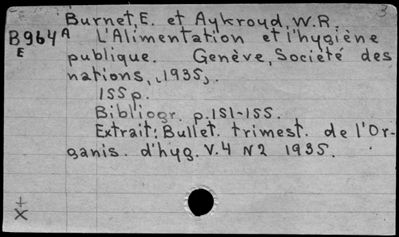 3
Burnet, E. et Aykroyd, W.R.
B964 A L'Alimentation et l'hygiène
E publique. Genève, Société des
nations, [1935].
155 p.
Bibliogr. p. 151-155.
Extrait: Bullet. trimest. de l'Or-
ganis. d'hyg. V.4 N2 1935.
+
X